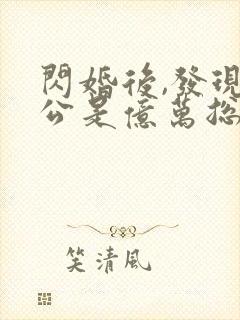 閃婚後,發現
公是億萬總
笑清風